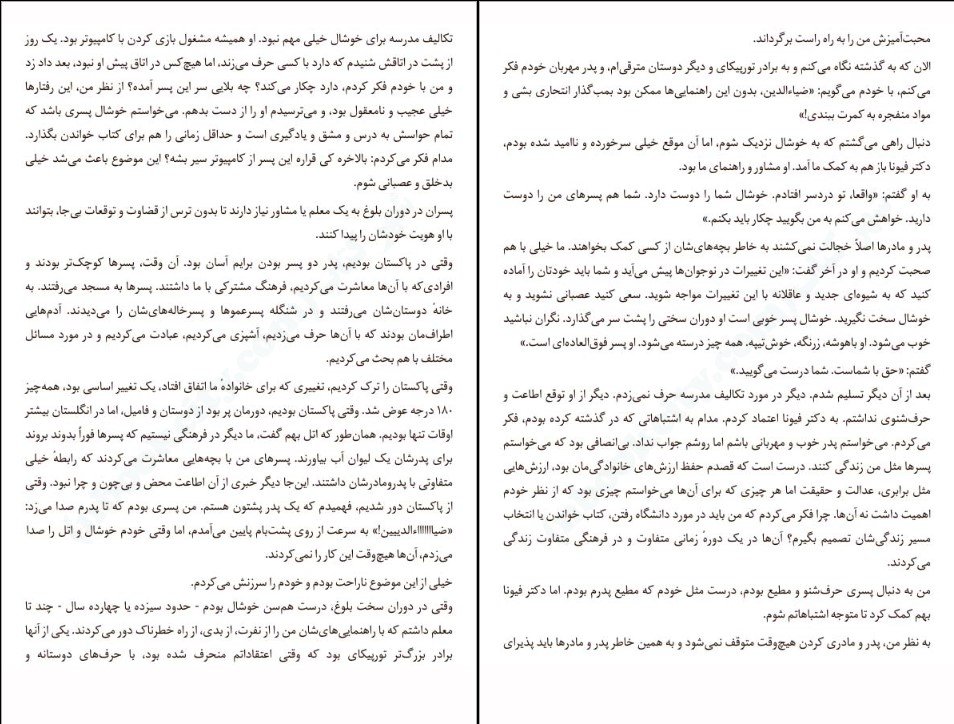 تکالیف مدرسه برای خوشال خیلی مهم نبود. او همیشه مشغول بازی کردن با کامپیوتر بود. یک روز
از پشت در اتاقش شنیدم که دارد با کسی حرف می‌زند، اما هیچ‌کس در اتاق پیش او نبود، بعد داد زد
و من با خودم فکر کردم، دارد چکار می‌کند؟ چه بلایی سر این پسر آمده؟ از نظر من، این رفتارها
خیلی عجیب و نامعقول بود، و می‌ترسیدم او را از دست بدهم. می‌خواستم خوشال پسری باشد که
تمام حواسش به درس و مشق و یادگیری است و حداقل زمانی را هم برای کتاب خواندن بگذارد.
مدام فکر می‌کردم: بالاخره کی قراره این پسر از کامپیوتر سیر بشه؟ این موضوع باعث می‌شد خیلی
بدخلق و عصبانی شوم.
پسران در دوران بلوغ به یک معلم یا مشاور نیاز دارند تا بدون ترس از قضاوت و توقعات بی‌جا، بتوانند
با او هویت خودشان را پیدا کنند.
وقتی در پاکستان بودیم، پدر دو پسر بودن برایم آسان بود. آن وقت، پسرها کوچک‌تر بودند و
افرادی‌که با آن‌ها معاشرت می‌کردیم، فرهنگ مشترکی با ما داشتند. پسرها به مسجد می‌رفتند. به
خانهٔ دوستان‌شان می‌رفتند و در شنگله پسرعموها و پسرخاله‌های‌شان را می‌دیدند. آدم‌هایی
اطراف‌مان بودند که با آن‌ها حرف می‌زدیم، آشپزی می‌کردیم، عبادت می‌کردیم و در مورد مسائل
مختلف با هم بحث می‌کردیم.
وقتی پاکستان را ترک کردیم، تغییری که برای خانوادهٔ ما اتفاق افتاد، یک تغییر اساسی بود، همه‌چیز
۱۸۰ درجه عوض شد. وقتی پاکستان بودیم، دورمان پر بود از دوستان و فامیل، اما در انگلستان بیشتر
اوقات تنها بودیم. همان‌طور که اتل بهم گفت، ما دیگر در فرهنگی نیستیم که پسرها فوراً بدوند بروند
برای پدرشان یک لیوان آب بیاورند. پسرهای من با بچه‌هایی معاشرت می‌کردند که رابطهٔ خیلی
متفاوتی با پدرومادرشان داشتند. این‌جا دیگر خبری از آن اطاعت محض و بی‌چون و چرا نبود. وقتی
از پاکستان دور شدیم، فهمیدم که یک پدر پشتون هستم. من پسری بودم که تا پدرم صدا می‌زد:
«ضیااااااااءالدییین!» به سرعت از روی پشت‌بام پایین می‌آمدم، اما وقتی خودم خوشال و اتل را صدا
می‌زدم، آن‌ها هیچ‌وقت این کار را نمی‌کردند.
خیلی از این موضوع ناراحت بودم و خودم را سرزنش می‌کردم.
وقتی در دوران سخت بلوغ، درست هم‌سن خوشال بودم - حدود سیزده یا چهارده سال - چند تا
معلم داشتم که با راهنمایی‌های‌شان من را از نفرت، از بدی، از راه خطرناک دور می‌کردند. یکی از آنها
برادر بزرگ‌تر تورپیکای بود که وقتی اعتقاداتم منحرف شده بود، با حرف‌های دوستانه و
محبت‌آمیزش من را به راه راست برگرداند.
الان که به گذشته نگاه می‌کنم و به برادر تورپیکای و دیگر دوستان مترقی‌ام، و پدر مهربان خودم فکر
می‌کنم، با خودم می‌گویم: «ضیاءالدین، بدون این راهنمایی‌ها ممکن بود بمب‌گذار انتحاری بشی و
مواد منفجره به کمرت ببندی!»
دنبال راهی می‌گشتم که به خوشال نزدیک شوم، اما آن موقع خیلی سرخورده و ناامید شده بودم،
دکتر فیونا باز هم به کمک ما آمد. او مشاور و راهنمای ما بود.
به او گفتم: «واقعا، تو دردسر افتادم. خوشال شما را دوست دارد. شما هم پسرهای من را دوست
دارید. خواهش می‌کنم به من بگویید چکار باید بکنم.»
پدر و مادرها اصلاً خجالت نمی‌کشند به خاطر بچه‌های‌شان از کسی کمک بخواهند. ما خیلی با هم
صحبت کردیم و او در آخر گفت: «این تغییرات در نوجوان‌ها پیش می‌آید و شما باید خودتان را آماده
کنید که به شیوه‌ای جدید و عاقلانه با این تغییرات مواجه شوید. سعی کنید عصبانی نشوید و به
خوشال سخت نگیرید. خوشال پسر خوبی است او دوران سختی را پشت سر می‌گذارد. نگران نباشید
خوب می‌شود. او باهوشه، زرنگه، خوش‌تیپه. همه چیز درسته می‌شود. او پسر فوق‌العاده‌ای است.»
گفتم: «حق با شماست. شما درست می‌گویید.»
بعد از آن دیگر تسلیم شدم. دیگر در مورد تکالیف مدرسه حرف نمی‌زدم. دیگر از او توقع اطاعت و
حرف‌شنوی نداشتم. به دکتر فیونا اعتماد کردم. مدام به اشتباهاتی که در گذشته کرده بودم، فکر
می‌کردم. می‌خواستم پدر خوب و مهربانی باشم اما روشم جواب نداد. بی‌انصافی بود که می‌خواستم
پسرها مثل من زندگی کنند. درست است که قصدم حفظ ارزش‌های خانوادگی‌مان بود، ارزش‌هایی
مثل برابری، عدالت و حقیقت اما هر چیزی که برای آن‌ها می‌خواستم چیزی بود که از نظر خودم
اهمیت داشت نه آن‌ها. چرا فکر می‌کردم که من باید در مورد دانشگاه رفتن، کتاب خواندن یا انتخاب
مسیر زندگی‌شان تصمیم بگیرم؟ آن‌ها در یک دورهٔ زمانی متفاوت و در فرهنگی متفاوت زندگی
می‌کردند.
من به دنبال پسری حرف‌شنو و مطیع بودم، درست مثل خودم که مطیع پدرم بودم. اما دکتر فیونا
بهم کمک کرد تا متوجه اشتباهاتم شوم.
به نظر من، پدر و مادری کردن هیچ‌وقت متوقف نمی‌شود و به همین خاطر پدر و مادرها باید پذیرای